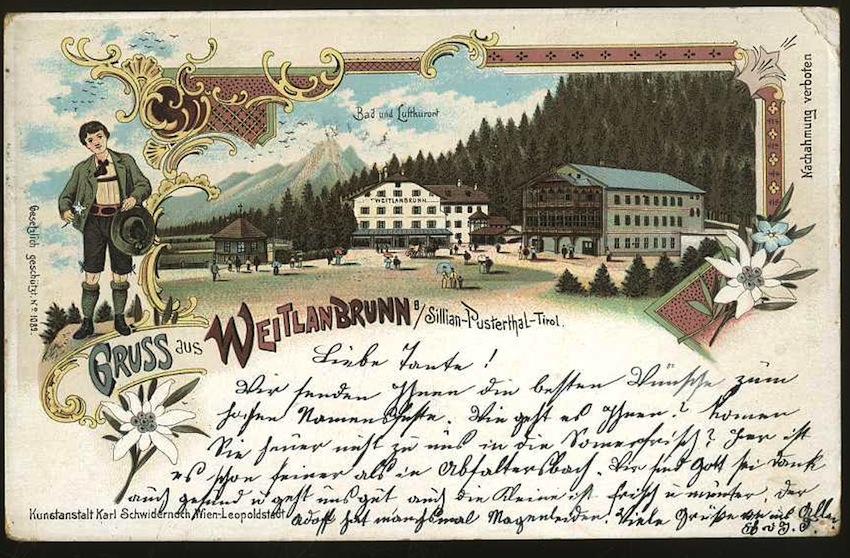 Bad und Luftkurort
WEITLANBRUNN
Nachahmung verboten
Gesetzlich geschützt. No 1089.
GRUSS aus WEITLANBRUNN B/Sillian-Pusterthal-Tirol.
Liebe Tante!
Wir senden Ihnen die besten Wünsche zum
hohen Namensfeste. Wie geht es Ihnen? Komen
Sie heuer nicht zu uns in die Somerfrisch? hier ist
es schon feiner als in Abfaltersbach. Wir sind Gott sei dank
auch gesund u geht uns gut auch die Kleine ist frisch u munter, der
Adolf hat manchsmal Magenleiden. Viele Grüße uns
Kunstanstalt Karl Schwidernoch, Wien-Leopoldstadt